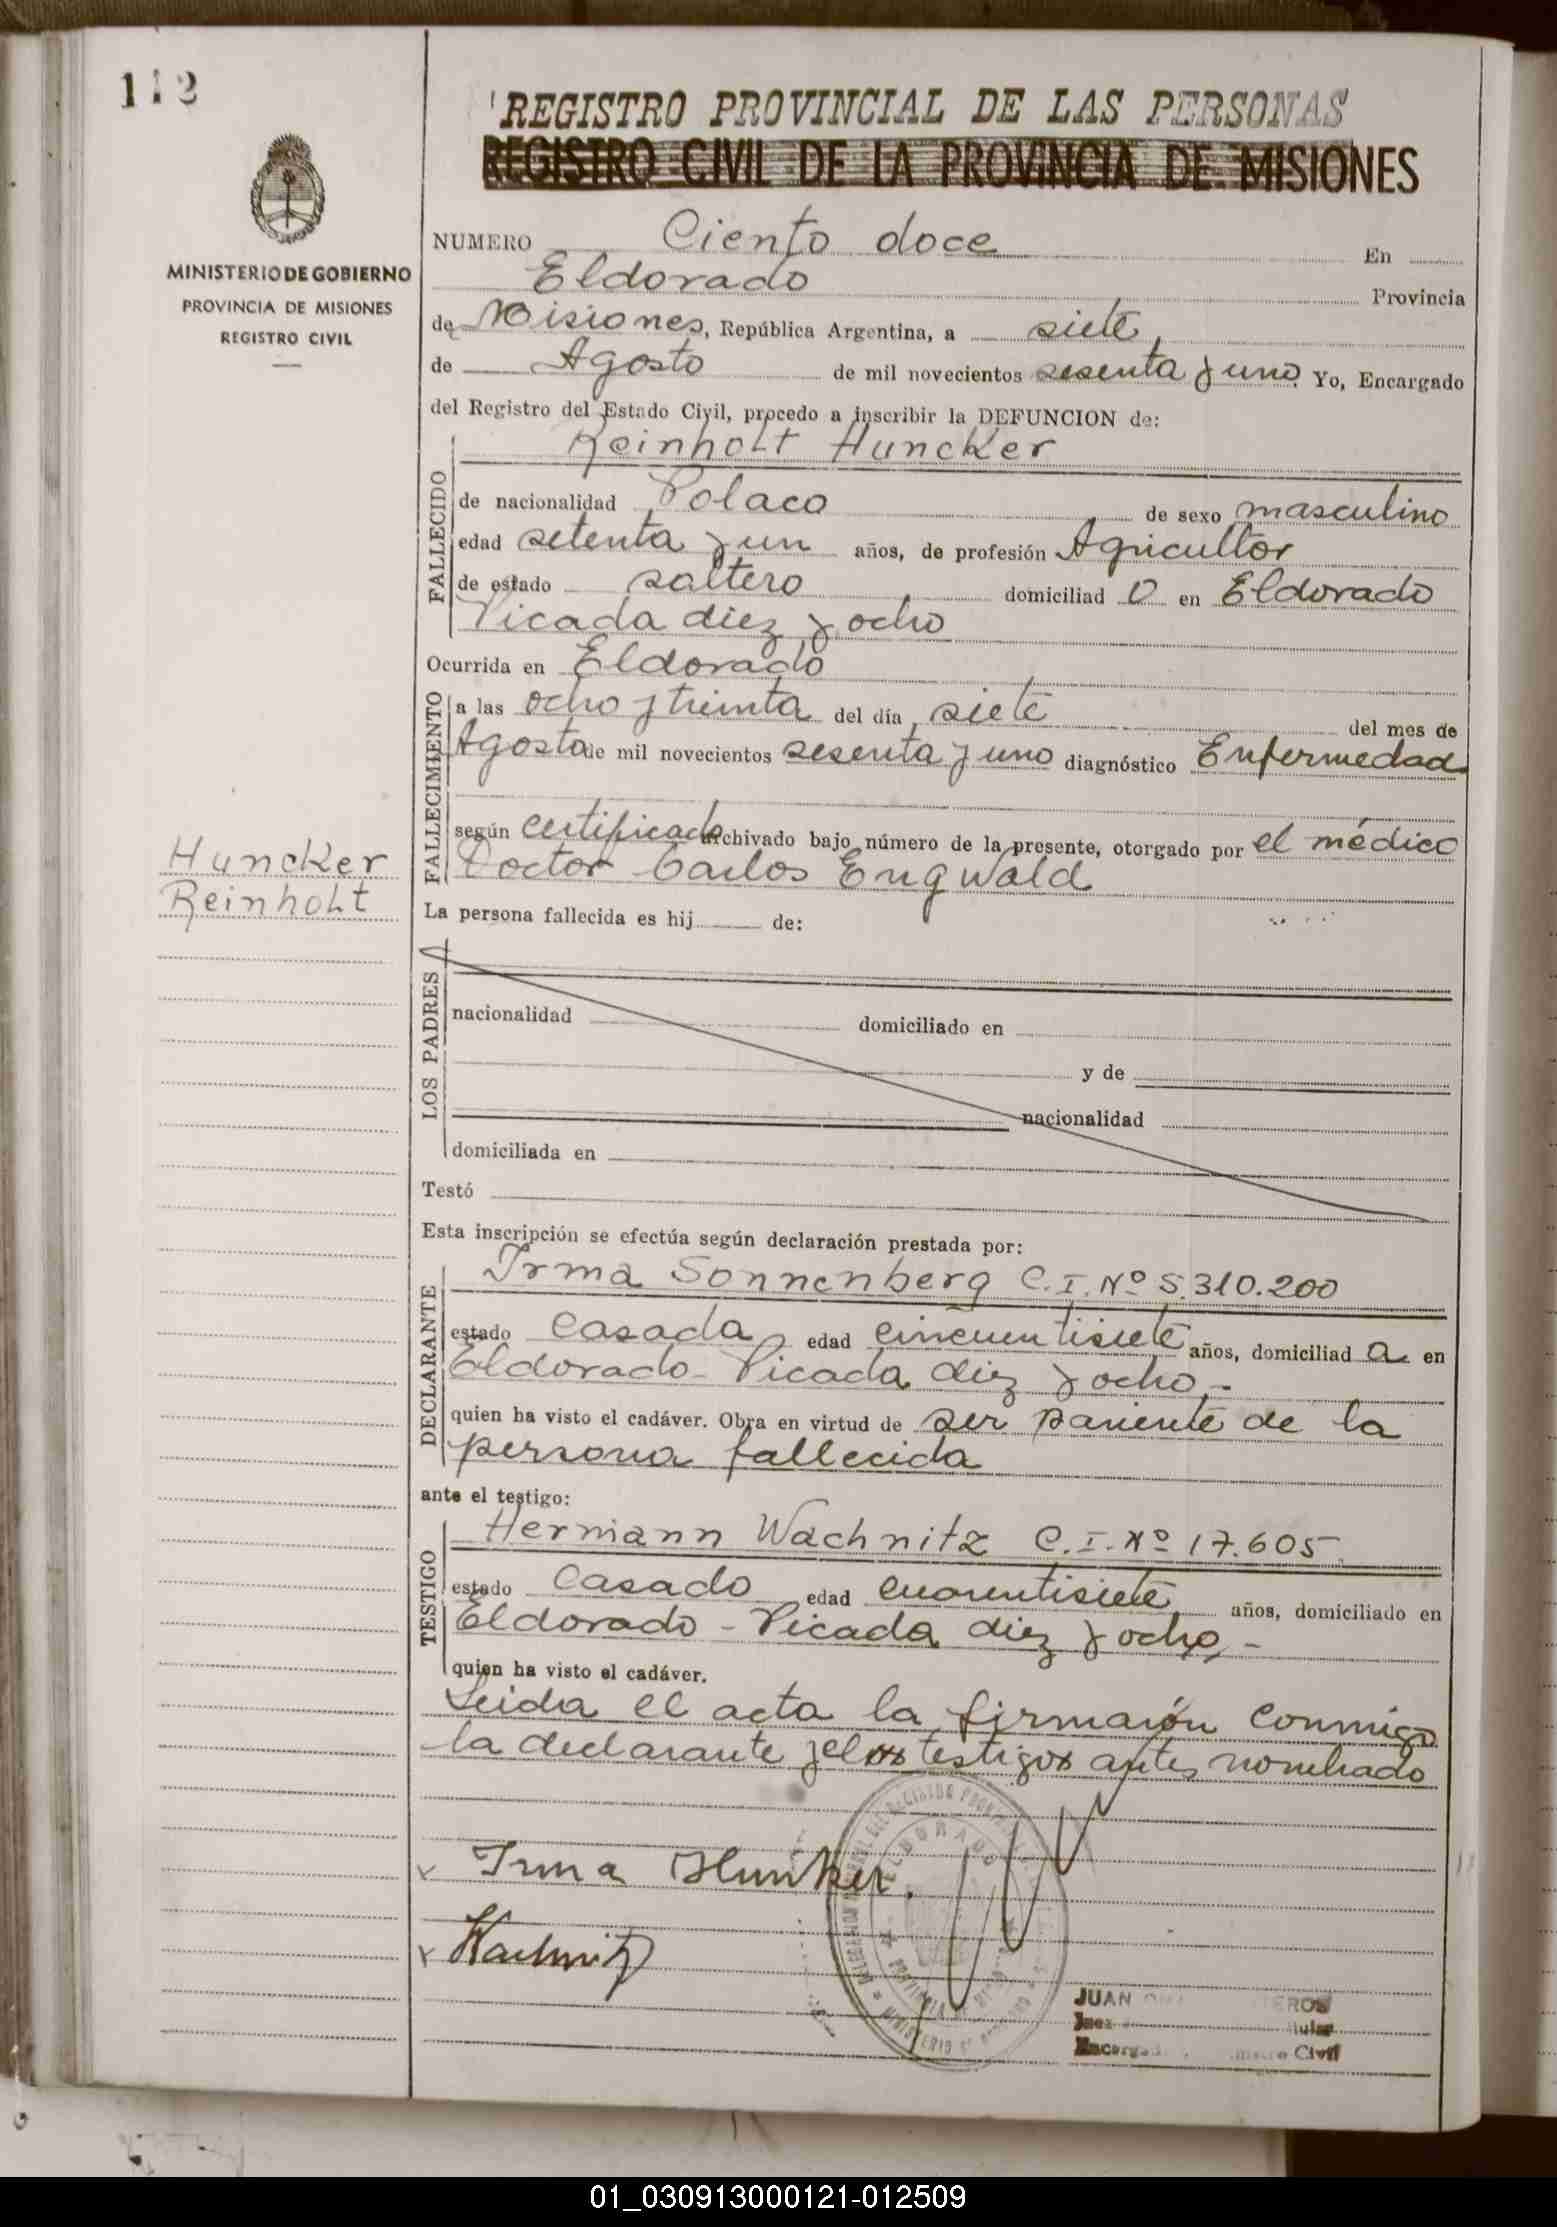 112
REGISTRO PROVINCIAL DE LAS PERSONAS
REGISTRO CIVIL DE LA PROVINCIA DE MISIONES
MINISTERIO DE GOBIERNO
PROVINCIA DE MISIONES
REGISTRO CIVIL
NUMERO Ciento doce En
Eldorado Provincia
de Misiones, República Argentina, a siete
de Agosto de mil novecientos sesenta y uno. Yo, Encargado
del Registro del Estado Civil, procedo a inscribir la DEFUNCION de:
Reinholt Huncker
FALLECIDO
de nacionalidad Polaco de sexo masculino
edad setenta y un años, de profesión Agricultor
de estado soltero domiciliad o en Eldorado
Picada diez y ocho
Ocurrida en Eldorado
FALLECIMIENTO
a las ocho y treinta del día siete del mes de
Agosto de mil novecientos sesenta y uno diagnóstico Enfermedad
según certificado archivado bajo número de la presente, otorgado por el médico
Doctor Carlos Engwald
Huncker
Reinholt
La persona fallecida es hij de:
LOS PADRES
nacionalidad domiciliado en
y de
nacionalidad
domiciliada en
Testó
Esta inscripción se efectúa según declaración prestada por:
Irma Sonnenberg C.I. Nº 5.310.200
DECLARANTE
estado Casada edad cincuentisiete años, domiciliad a en
Eldorado - Picada diez y ocho.-
quien ha visto el cadáver. Obra en virtud de ser pariente de la
persona fallecida
ante el testigo:
Hermann Wachnitz C.I. Nº 17.605
TESTIGO
estado Casado edad cuarentisiete años, domiciliado en
Eldorado - Picada diez y ocho -
quien ha visto el cadáver.
Leida el acta la firmarón conmigo
la declarante y el testigo antes nombrado
Irma Hunker.
Wachnitz
ELDORADO
JUAN
Juez
Civil
01_030913000121-012509